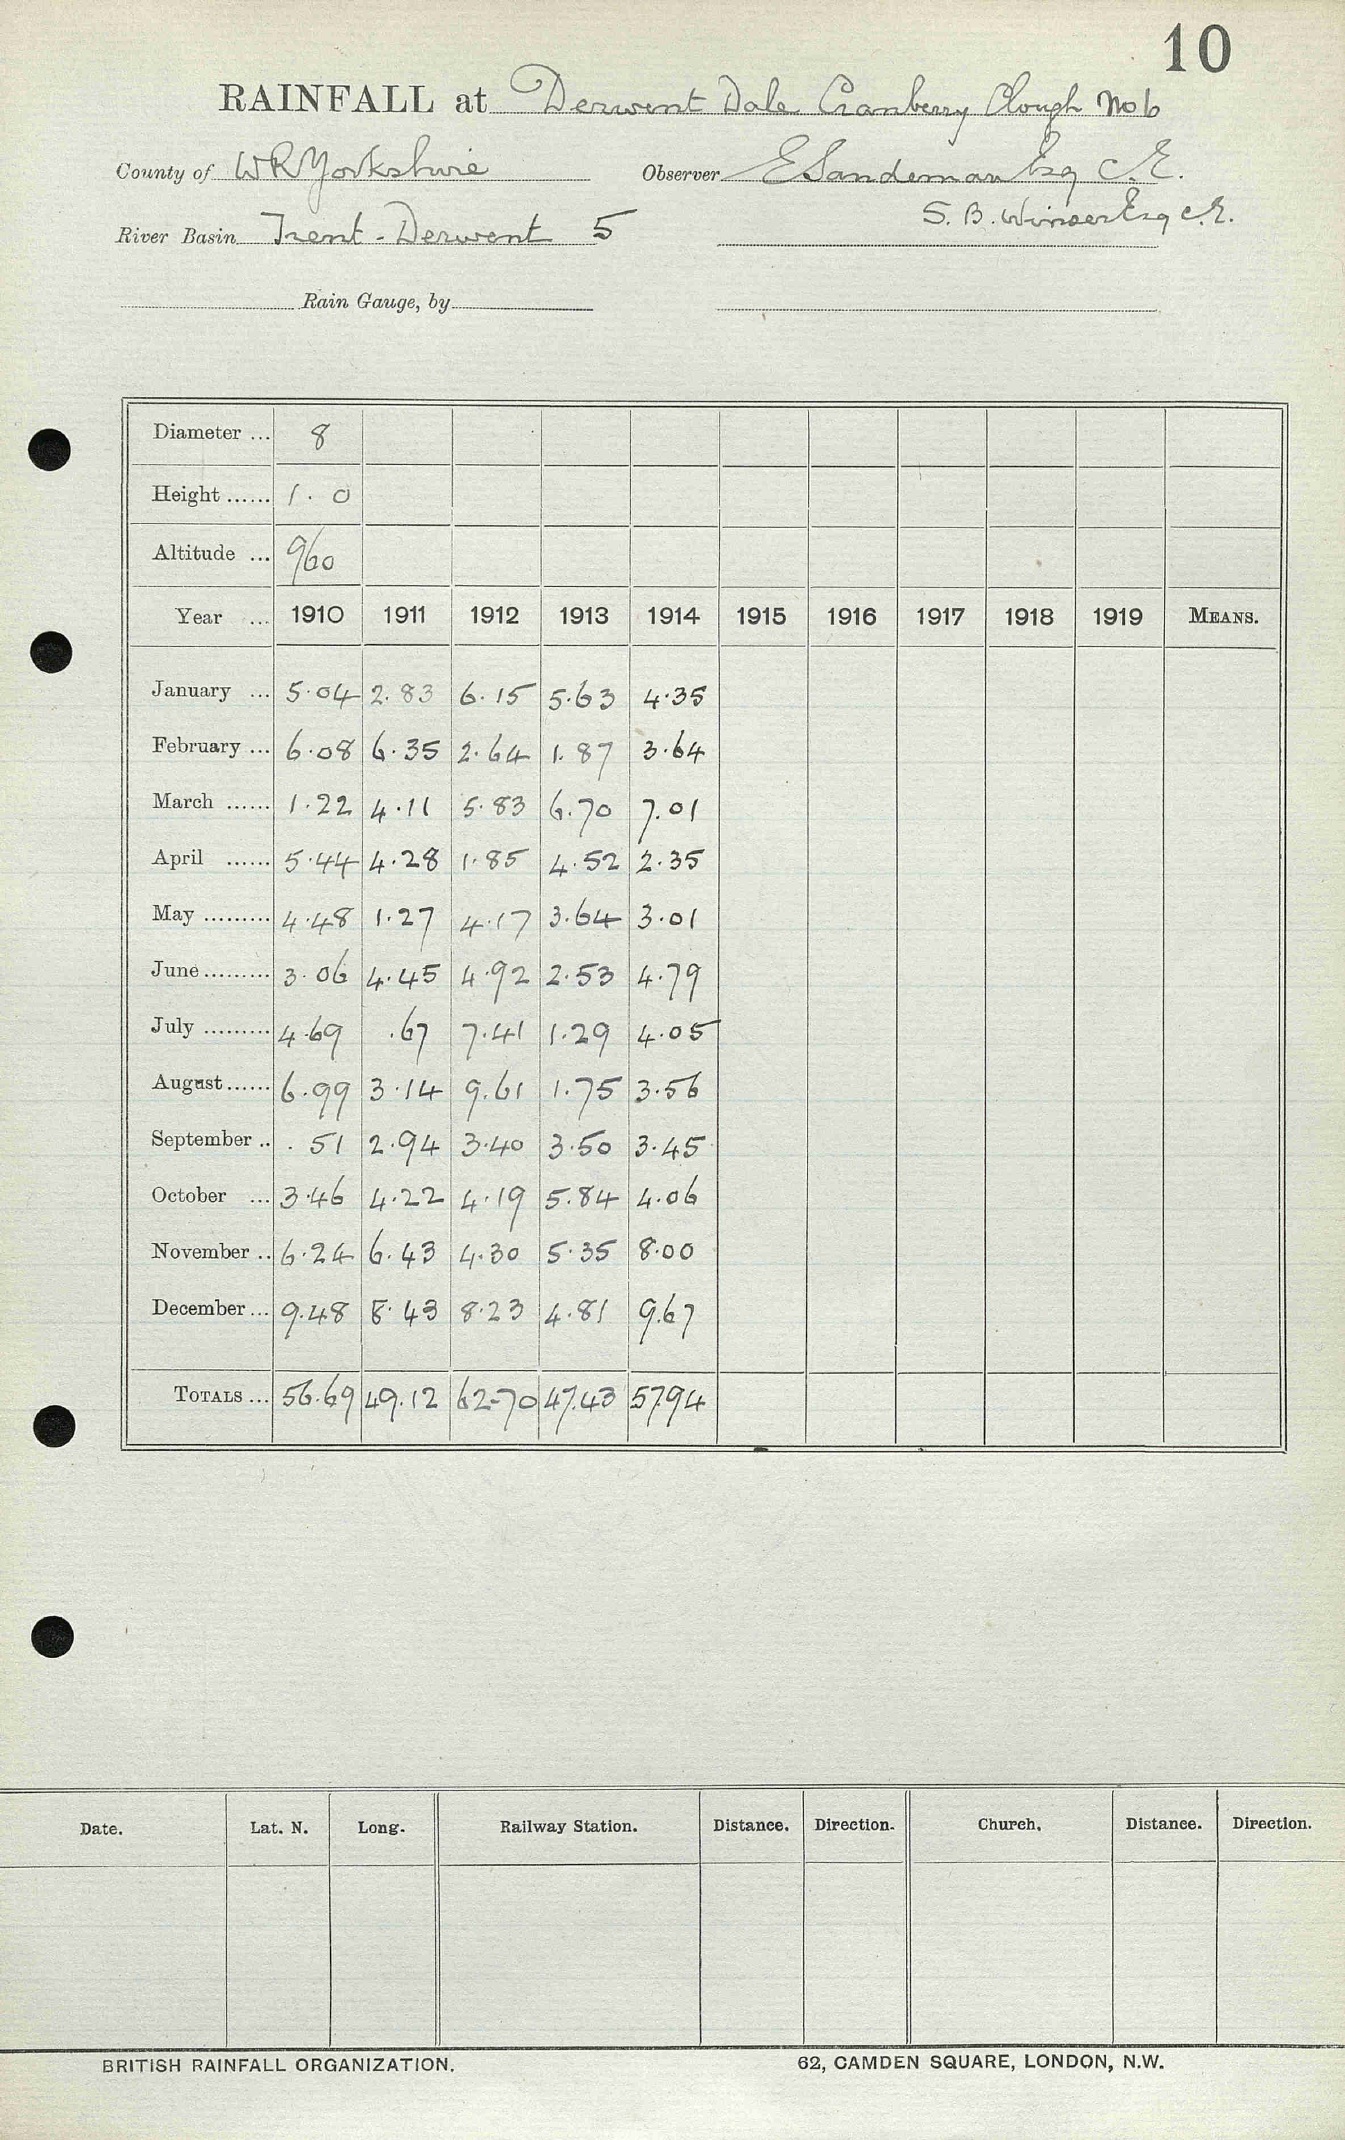 10
RAINFALL at Derwent Dale Cranberry Clough No 6
County of W R Yorkshire Observer E Sandeman Esq C.E.
S. B. Winser Esq C.E.
River Basin Trent - Derwent 5
Rain Gauge, by
Diameter ... 8
Height ...... 1 . 0
Altitude ... 960
Year ... 1910 1911 1912 1913 1914 1915 1916 1917 1918 1919 MEANS.
January ... 5.04 2.83 6.15 5.63 4.35
February ... 6.08 6.35 2.64 1.87 3.64
March ...... 1.22 4.11 5.83 6.70 7.01
April ...... 5.44 4.28 1.85 4.52 2.35
May ......... 4.48 1.27 4.17 3.64 3.01
June ......... 3.06 4.45 4.92 2.53 4.79
July ......... 4.69 .67 7.41 1.29 4.05
August ...... 6.99 3.14 9.61 1.75 3.56
September .. .51 2.94 3.40 3.50 3.45
October ... 3.46 4.22 4.19 5.84 4.06
November .. 6.24 6.43 4.30 5.35 8.00
December ... 9.48 8.43 8.23 4.81 9.67
TOTALS ... 56.69 49.12 62.70 47.43 57.94
Date. Lat. N. Long. Railway Station. Distance. Direction. Church. Distance. Direction.
BRITISH RAINFALL ORGANIZATION. 62, CAMDEN SQUARE, LONDON, N.W.